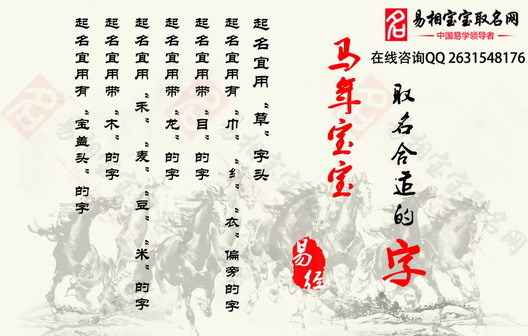 易相宝宝取名网
中国易学领导者
在线咨询QQ 2631548176
取名合适的字
马年宝宝
易经
起名宜用“草”字头
起名宜用有“巾”“乡”“衣”偏旁的字
起名宜用带“目”的字
起名宜用带“龙”的字
起名宜用“禾”“麦”“豆”“米”的字
起名宜用带“木”的字
起名宜用有“宝盖头”的字